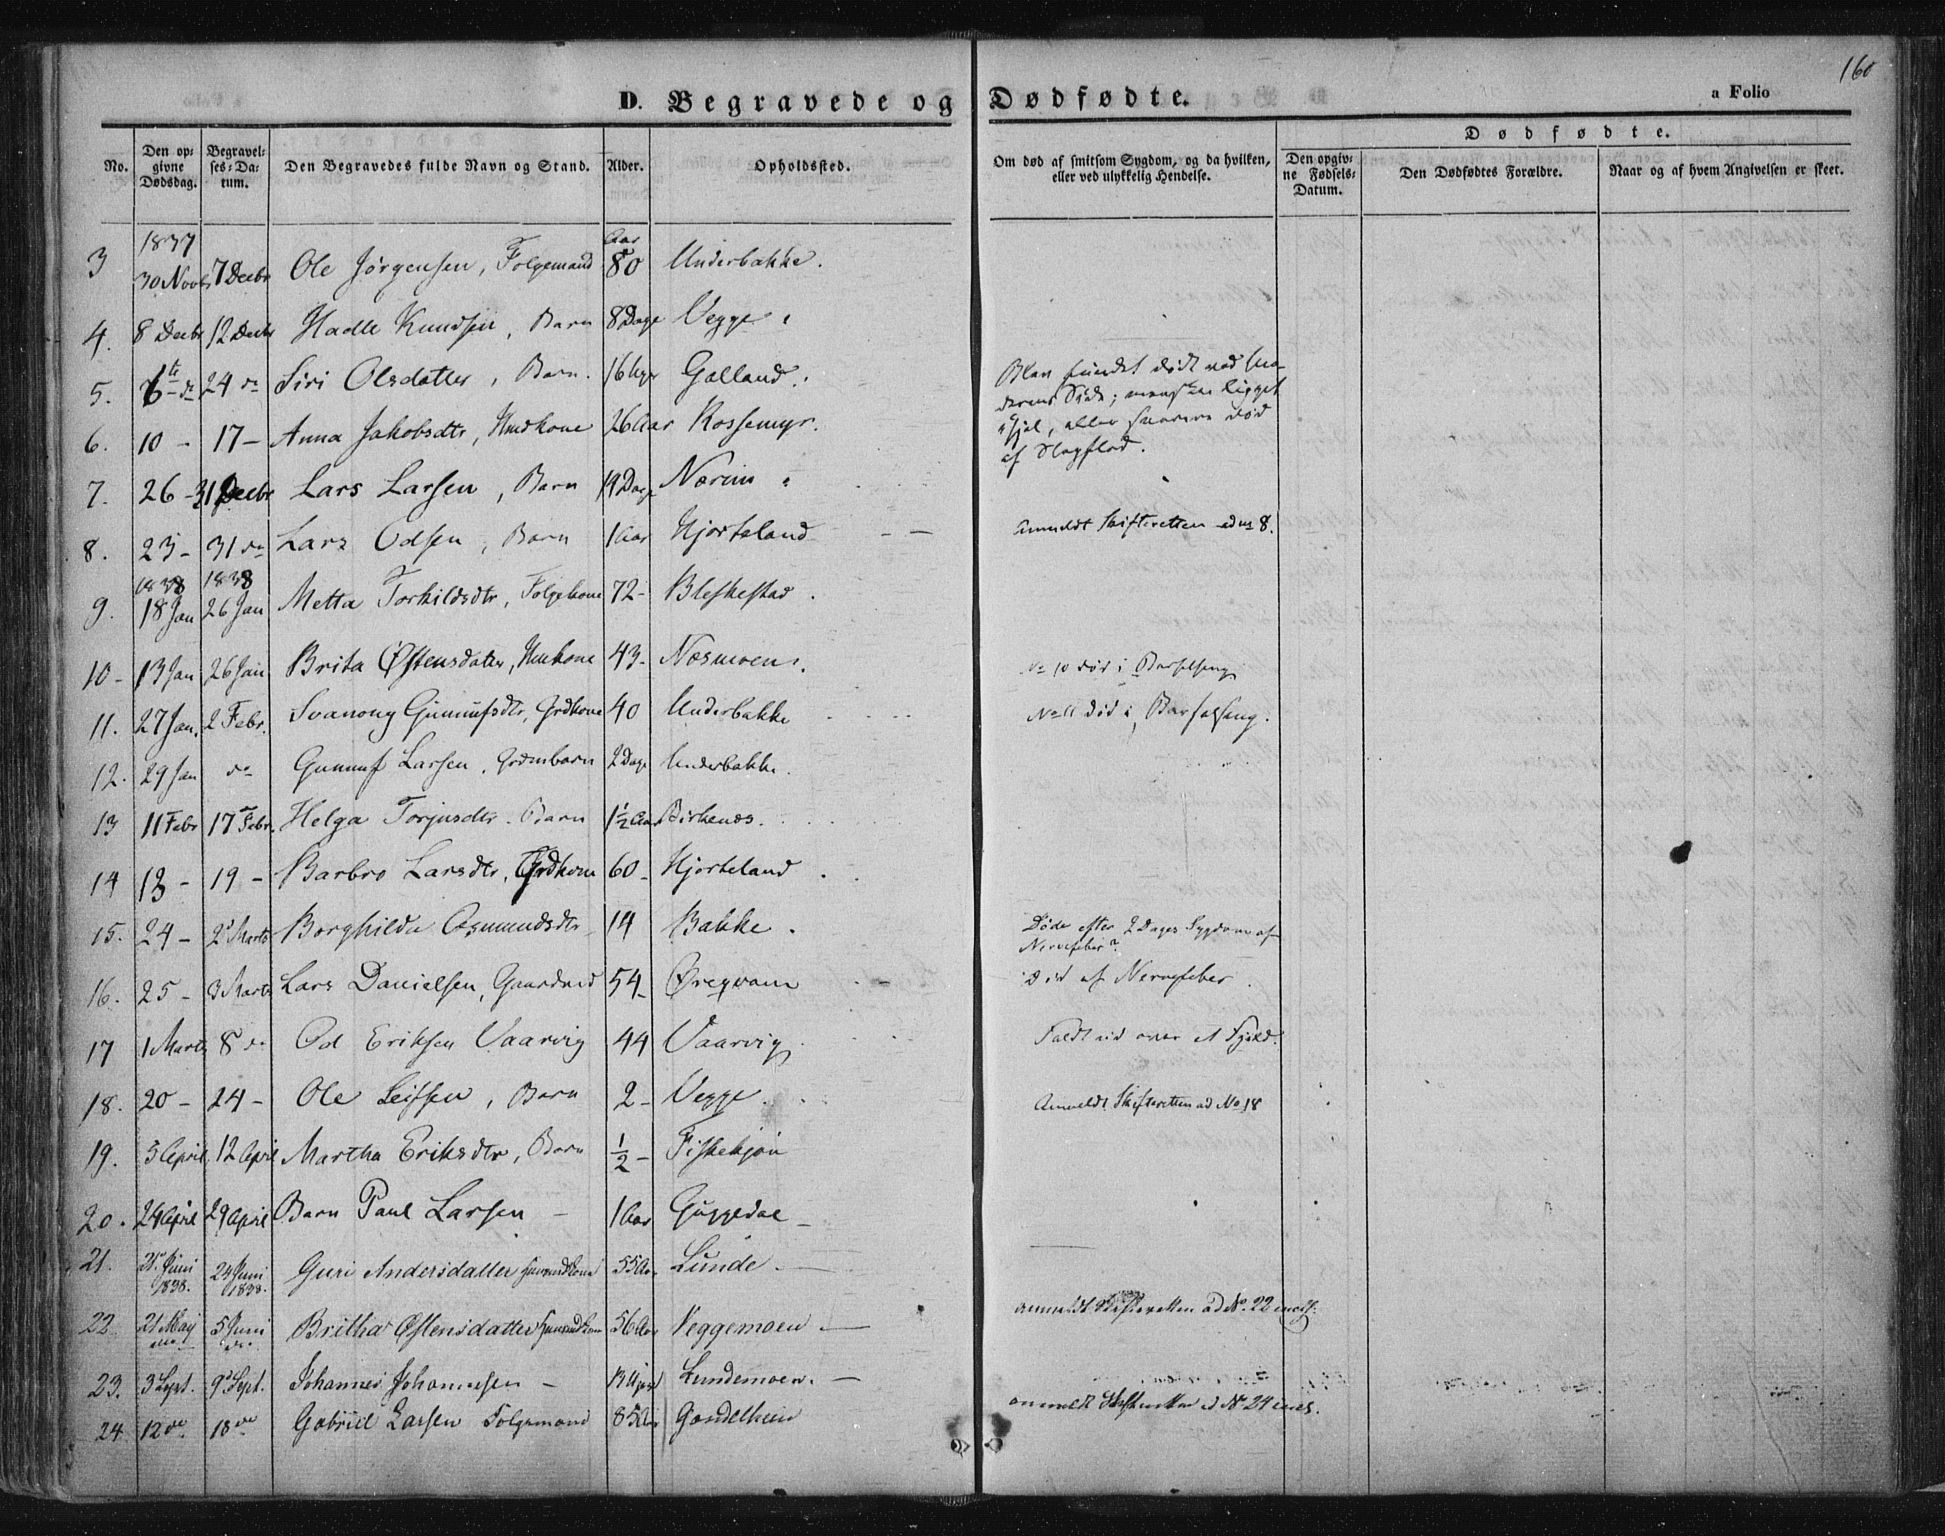 160
D. Begravede og Dødfødte.
a Folio
No. Den opgivne Dødsdag. Begravelses-Datum. Den Begravedes fulde Navn og Stand. Alder. Opholdssted. Om død af smitsom Sygdom, og da hvilken, eller ved ulykkelig Hendelse. Dødfødte. Den opgivne Fødsels-Datum. Den Dødfødtes Forældre. Naar og af hvem Angivelsen er skeet.
1837 Aar
3 30 Novbr 7 Decbr Ole Jørgensen, Folgemand 80 Underbakke.
4. 8 Decbr 12 Decbr Hadle Knudsen, Barn 8 Dage Vegge.
5. 6te do 24 do Siri Olsdatter, Barn. 16 Uger Galland. Blev fundet død ved Moderens Side;
6. 10 - 17 - Anna Jakobsdtr, Huskone 26 Aar Rossemyr. ihjel, eller snarere død af Slagflod.
7. 26 - 31 Decbr Lars Larsen, Barn 19 Dage Nærim
8. 23 - 31 do Lars Odsen, Barn 1 Aar Hjorteland - - anmeldt Skifteretten ad no 8.
1838 1838
9. 18 Jan 26 Jan Metta Torkildsdtr, Folgekone 72 - Bleskestad.
10 - 13 Jan 26 Jan Brita Østensdater, Huskone 43 - Næsmoen. No 10 død i Barselseng
11. 27 Jan. 2 Febr. Svanong Gunnufsdtr, Grdkone 40 Underbakke No 11 død i Barselseng.
12. 29 Jan do Gunnuf Larsen, Grdmbarn 2 Dage Underbakke.
13 11 Febr 17 Febr. Helga Torjusdtr. Barn 1 1/2 Aar Birkenæs.
14 13 - 19 - Barbro Larsdtr, Grdkone 60 - Hjorteland.
15. 24 - 2 Marts Borghilda Asmundsdtr 14 Bakke. Døde efter 2 Dages Sygdom af Nervefeber?
16. 25 - 3 Marts Lars Danielsen, Gaardmd 54 - Øreqvam - Død af Nervefeber.
17 1 Marts 8 do Od Eriksen Vaarvig 44 Vaarvig Faldt ud over et Fjeld.
18. 20 - 24 - Ole Leifsen, Barn 2 - Vegge. Anmeldt Skifteretten ad No 18
19. 5 April 12 April Martha Eriksdtr, Barn 1/2 - Fiskekjøn
20. 24 April 29 April Barn Paul Larsen - 1 Aar Guggedal -
21. 21 Juni 1838. 24 Juni 1838. Guri Andersdatter Huusmdkone 55 Aar Lunde -
22. 21 May 5 Juni do Britha Østensdatter Huusmdkone 56 Aar Veggemoen - anmeldt Skifteretten ad No. 22
23. 3 Sept. 9 Sept. Johannes Johannesen - 13 Uger Lundemoen. -
24. 12 do 18 do Gabriel Larsen Folgemand 85 Aar anmeldt Skifteretten ad No 24